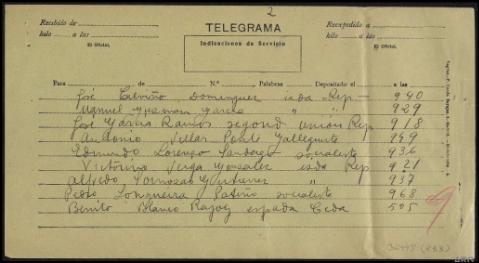 2
Recibido de
hilo a las
El Oficial,
TELEGRAMA
Indicaciones de Servicio
Expedido a
hilo a las
El Oficial,
Para de N.º Palabras Depositado el a las
José Calviño Dominguez isda Rep.— 940
Manuel Guzman Garcia " " 929
José Garcia Ramos segond union Rep 918
Antonio Villar Ponte Galleguista
Edmundo Lorenzo Santiago socialista 936
Victorino Veiga Gonzalez isda Rep 921
Alfredo Somoza Gutierrez " 937
Pedro Longueira Patiño socialista 968
Benito Blanco Rajoy espada Ceda 505